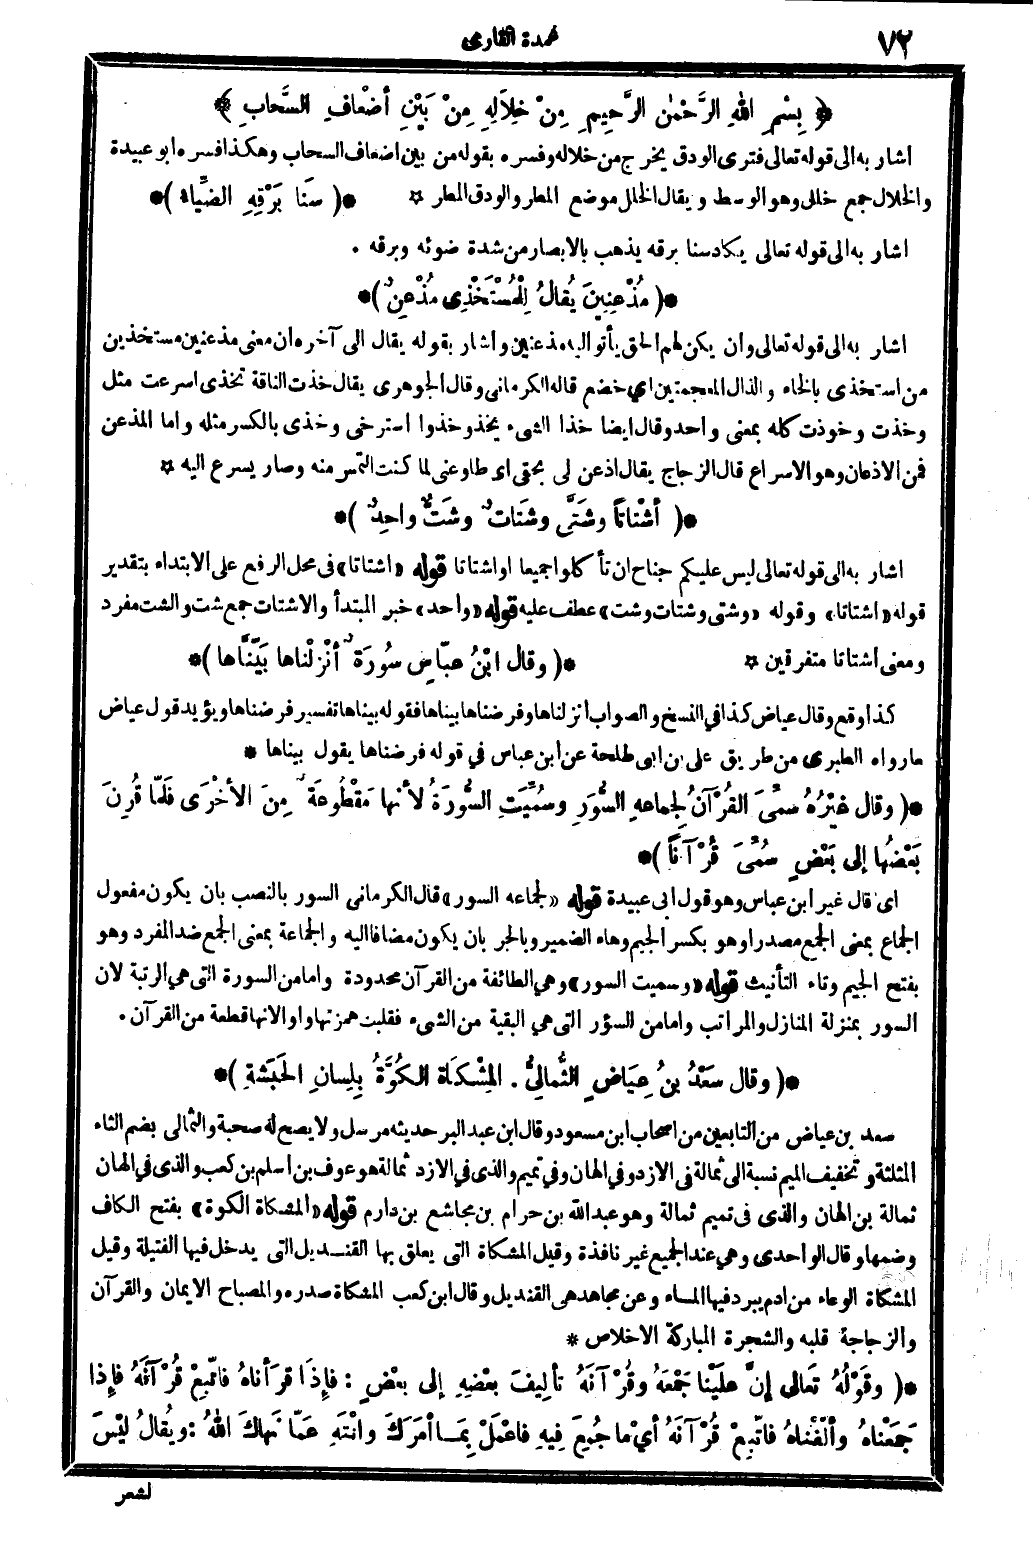 ٧٢
عمدة القاري
﴿ بِسْمِ اللهِ الرَّحْمٰنِ الرَّحِيمِ مِنْ خِلَالِهِ مِنْ بَيْنِ أضْعافِ السَّحابِ ﴾
اشار به الى قوله تعالى فترى الودق يخرج من خلاله وفسره بقوله من بين اضعاف السحاب وهكذا فسره ابو عبيدة
والخلال جمع خلل وهو الوسط ويقال الخلل موضع المطر والودق المطر ☆ *( سَنَا بَرْقِهِ الضِّيَاءُ )*
اشار به الى قوله تعالى يكاد سنا برقه يذهب بالابصار من شدة ضوئه وبرقه .
*( مُذْعِنِينَ يُقالُ لِلْمُسْتَخْذِى مُذْعِنٌ )*
اشار به الى قوله تعالى وان يكن لهم الحق يأتوا اليه مذعنين واشار بقوله يقال الى آخره ان معنى مذعنين مستخذين
من استخذى بالخاء والذال المعجمتين اي خضع قاله الكرمانى وقال الجوهرى يقال خذت الناقة تخذى اسرعت مثل
وخذت وخوذت كله بمعنى واحد وقال ايضا خذا الشىء يخذو خذوا استرخى وخذى بالكسر مثله واما المذعن
فمن الاذعان وهو الاسراع قال الزجاج يقال اذعن لى بحقى اى طاوعنى لما كنت التمس منه وصار يسرع اليه ☆
*( أشْتاتاً وشَتَّى وشَتَاتٌ وشَتٌّ واحِدٌ )*
اشار به الى قوله تعالى ليس عليكم جناح ان تأكلوا جميعا او اشتاتا قوله «اشتاتا» فى محل الرفع على الابتداء بتقدير
قوله «اشتاتا» وقوله «وشتى وشتات وشت» عطف عليه قوله «واحد» خبر المبتدأ والاشتات جمع شت والشت مفرد
ومعنى اشتاتا متفرقين ☆ *( وقال ابْنُ عبّاسٍ سُورَةٌ أنْزلْناها بَيَّنَّاها )*
كذا وقع وقال عياض كذا في النسخ والصواب انزلناها وفرضناها بيناها فقوله بيناها تفسير فرضناها ويؤيد قول عياض
مارواه الطبرى من طريق على بن ابى طلحة عن ابن عباس في قوله فرضناها يقول بيناها *
*( وقال غيْرُهُ سمِّىَ القُرْآنُ لِجماعهِ السُّوَرِ وسُمِّيَتِ السُّورَةُ لأنها مَقْطُوعَةٌ مِنَ الأخْرَى فَلَمّا قُرِنَ
بَعْضُها إلى بَعْضٍ سُمِّىَ قُرْآناً )*
اى قال غير ابن عباس وهو قول ابى عبيدة قوله «لجماعه السور» قال الكرمانى السور بالنصب بان يكون مفعول
الجماع بمعنى الجمع مصدرا وهو بكسر الجيم وهاء الضمير وبالجر بان يكون مضافا اليه والجماعة بمعنى الجمع ضد المفرد وهو
بفتح الجيم وتاء التأنيث قوله «وسميت السور» وهي الطائفة من القرآن محدودة واما من السورة التى هي الرتبة لان
السور بمنزلة المنازل والمراتب واما من السؤر التى هي البقية من الشىء فقلبت همزتها واوا لانها قطعة من القرآن .
*( وقال سَعْدُ بنُ عِيَاضٍ الثُّمالِيُّ . المِشْكَاةُ الكُوَّةُ بِلِسانِ الحَبَشَةِ )*
سعد بن عياض من التابعين من اصحاب ابن مسعود وقال ابن عبد البر حديثه مرسل ولا يصح له صحبة والثمالى بضم الثاء
المثلثة وتخفيف الميم نسبة الى ثمالة فى الازد وفي الهان وفي تميم والذى في الازد ثمالة هو عوف بن اسلم بن كعب والذى في الهان
ثمالة بن الهان والذى فى تميم ثمالة وهو عبد الله بن حرام بن مجاشع بن دارم قوله «المشكاة الكوة» بفتح الكاف
وضمها وقال الواحدى وهي عند الجميع غير نافذة وقيل المشكاة التى يعلق بها القنديل التى يدخل فيها الفتيلة وقيل
المشكاة الوعاء من ادم يبرد فيها الماء وعن مجاهد هى القنديل وقال ابن كعب المشكاة صدره والمصباح الايمان والقرآن
والزجاجة قلبه والشجرة المباركة الاخلاص *
*( وقَوْلُهُ تَعالى إنَّ علَيْنا جَمْعَهُ وقُرْآنَهُ تألِيفَ بعْضِهِ إلى بعْضٍ : فإِذَا قرَأناهُ فاتَّبِعْ قُرْآنَهُ فإِذا
جَمَعْناهُ وألّفْناهُ فاتَّبِعْ قُرْآنَهُ أيْ ما جُمِعَ فِيهِ فاعْمَلْ بِمَا أمرَكَ وانْتَهِ عَمّا نَهاكَ اللهُ : ويُقالُ ليْسَ
لشعر